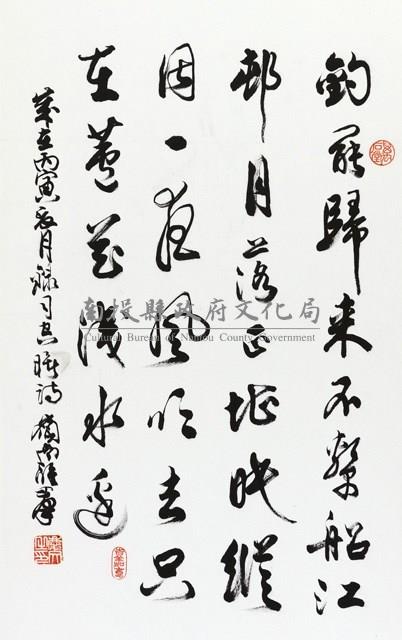 釣罷歸來不繫船江
邨月落正堪眠縱
因一夜風吹去只
在蘆花淺水邊
歲在丙寅月錄司空曙詩
南投縣政府文化局
Cultural Bureau of Nantou County Government